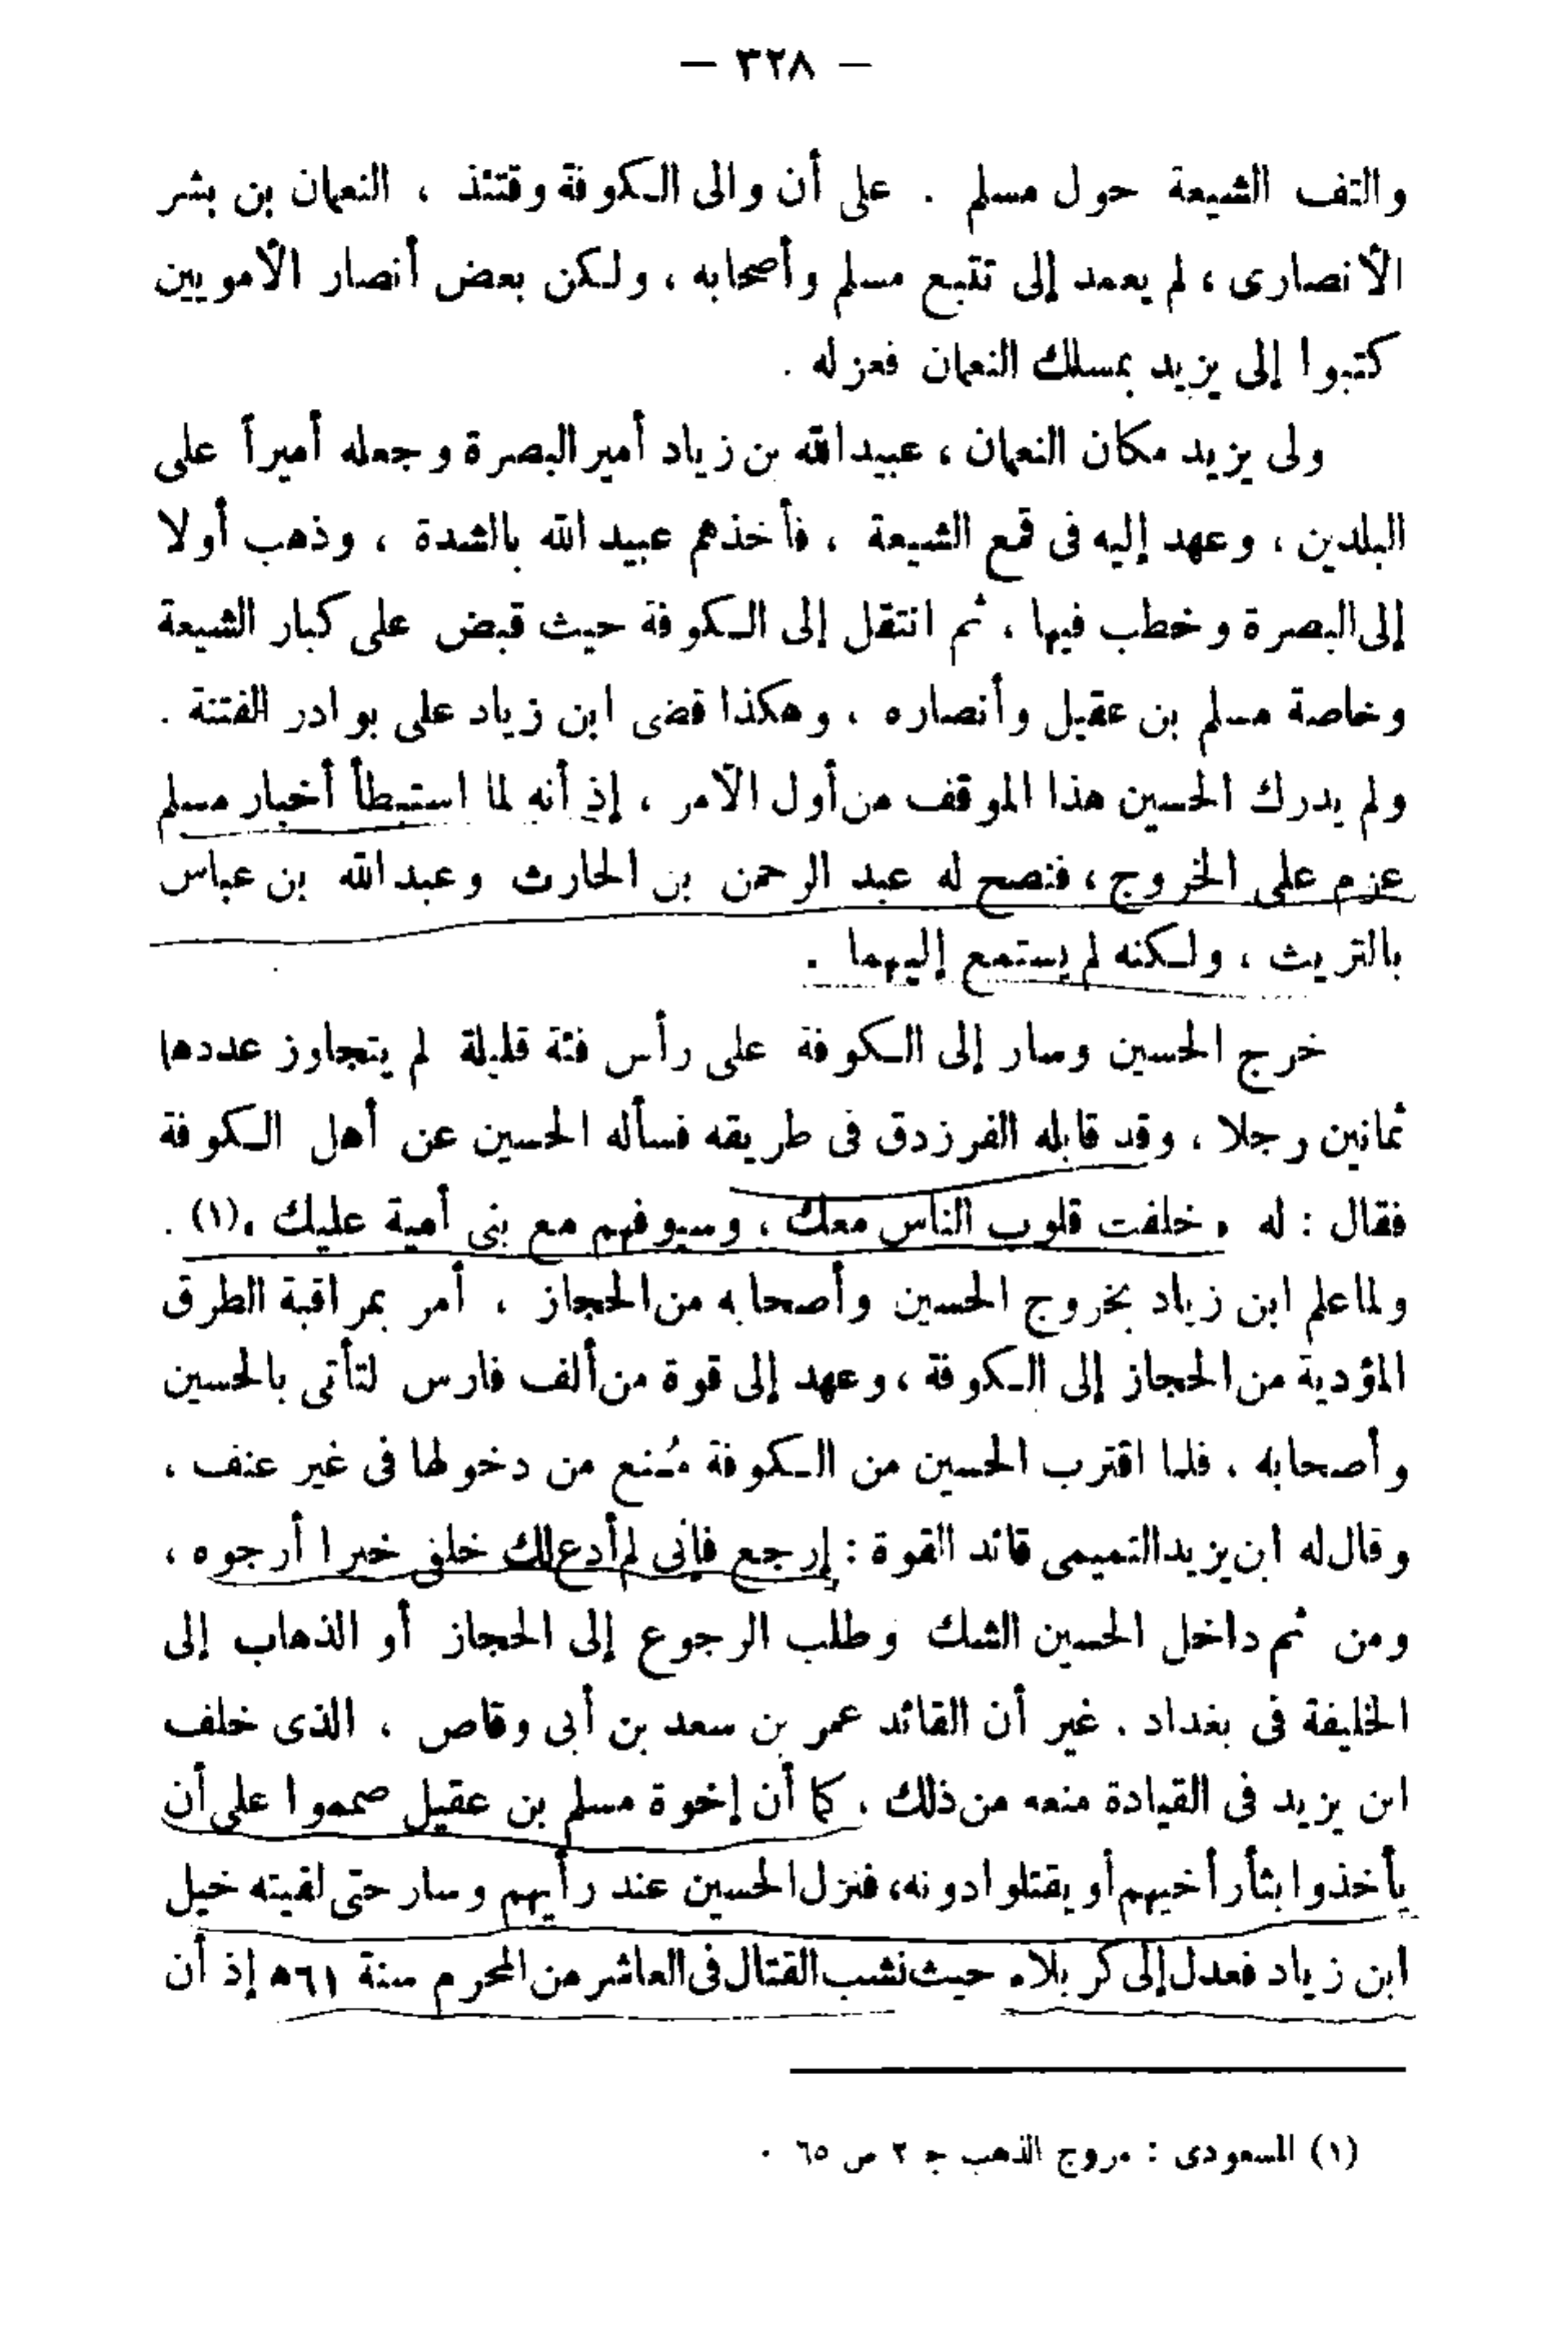 — ٣٢٨ —
والتف الشيعة حول مسلم . على أن والى الكوفة وقتئذ ، النعمان بن بشر
الأنصارى ، لم يعمد إلى تتبع مسلم وأصحابه ، ولكن بعض أنصار الأمويين
كتبوا إلى يزيد بمسلك النعمان فعزله .
ولى يزيد مكان النعمان ، عبيد الله بن زياد أمير البصرة وجعله أميراً على
البلدين ، وعهد إليه فى قمع الشيعة ، فأخذهم عبيد الله بالشدة ، وذهب أولا
إلى البصرة وخطب فيها ، ثم انتقل إلى الكوفة حيث قبض على كبار الشيعة
وخاصة مسلم بن عقيل وأنصاره ، وهكذا قضى ابن زياد على بوادر الفتنة .
ولم يدرك الحسين هذا الموقف من أول الأمر ، إذ أنه لما استبطأ أخبار مسلم
عزم على الخروج ، فنصح له عبد الرحمن بن الحارث وعبد الله بن عباس
بالتريث ، ولكنه لم يستمع إليهما .
خرج الحسين وسار إلى الكوفة على رأس فئة قليلة لم يتجاوز عددها
ثمانين رجلا ، وقد قابله الفرزدق فى طريقه فسأله الحسين عن أهل الكوفة
فقال : له « خلفت قلوب الناس معك ، وسيوفهم مع بنى أمية عليك »(١) .
ولما علم ابن زياد بخروج الحسين وأصحابه من الحجاز ، أمر بمراقبة الطرق
المؤدية من الحجاز إلى الكوفة ، وعهد إلى قوة من ألف فارس لتأتى بالحسين
وأصحابه ، فلما اقترب الحسين من الكوفة مُنع من دخولها فى غير عنف ،
وقال له ابن يزيد التميمى قائد القوة : إرجع فإنى لم أدع لك خلفى خيرا أرجوه ،
ومن ثم داخل الحسين الشك وطلب الرجوع إلى الحجاز أو الذهاب إلى
الخليفة فى بغداد . غير أن القائد عمر بن سعد بن أبى وقاص ، الذى خلف
ابن يزيد فى القيادة منعه من ذلك . كما أن إخوة مسلم بن عقيل صمموا على أن
يأخذوا بثأر أخيهم أو يقتلوا دونه ، فنزل الحسين عند رأيهم وسار حتى لقيته خيل
ابن زياد فعدل إلى كربلاء حيث نشب القتال فى العاشر من المحرم سنة ٦١هـ إذ أن
(١) المسعودى : مروج الذهب جـ ٢ ص ٦٥ .